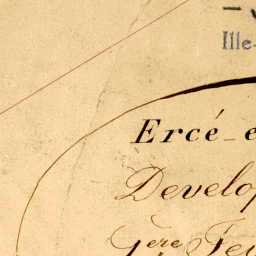 Ille-
Ercé-e
Develop
1ère Feu